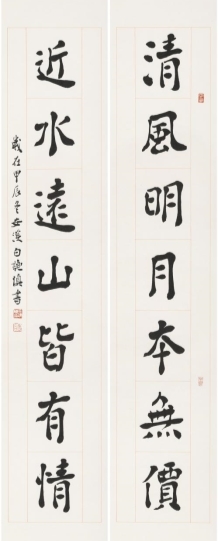 清風明月本無價
近水遠山皆有情
歲在甲辰冬安溪白聰鎮書